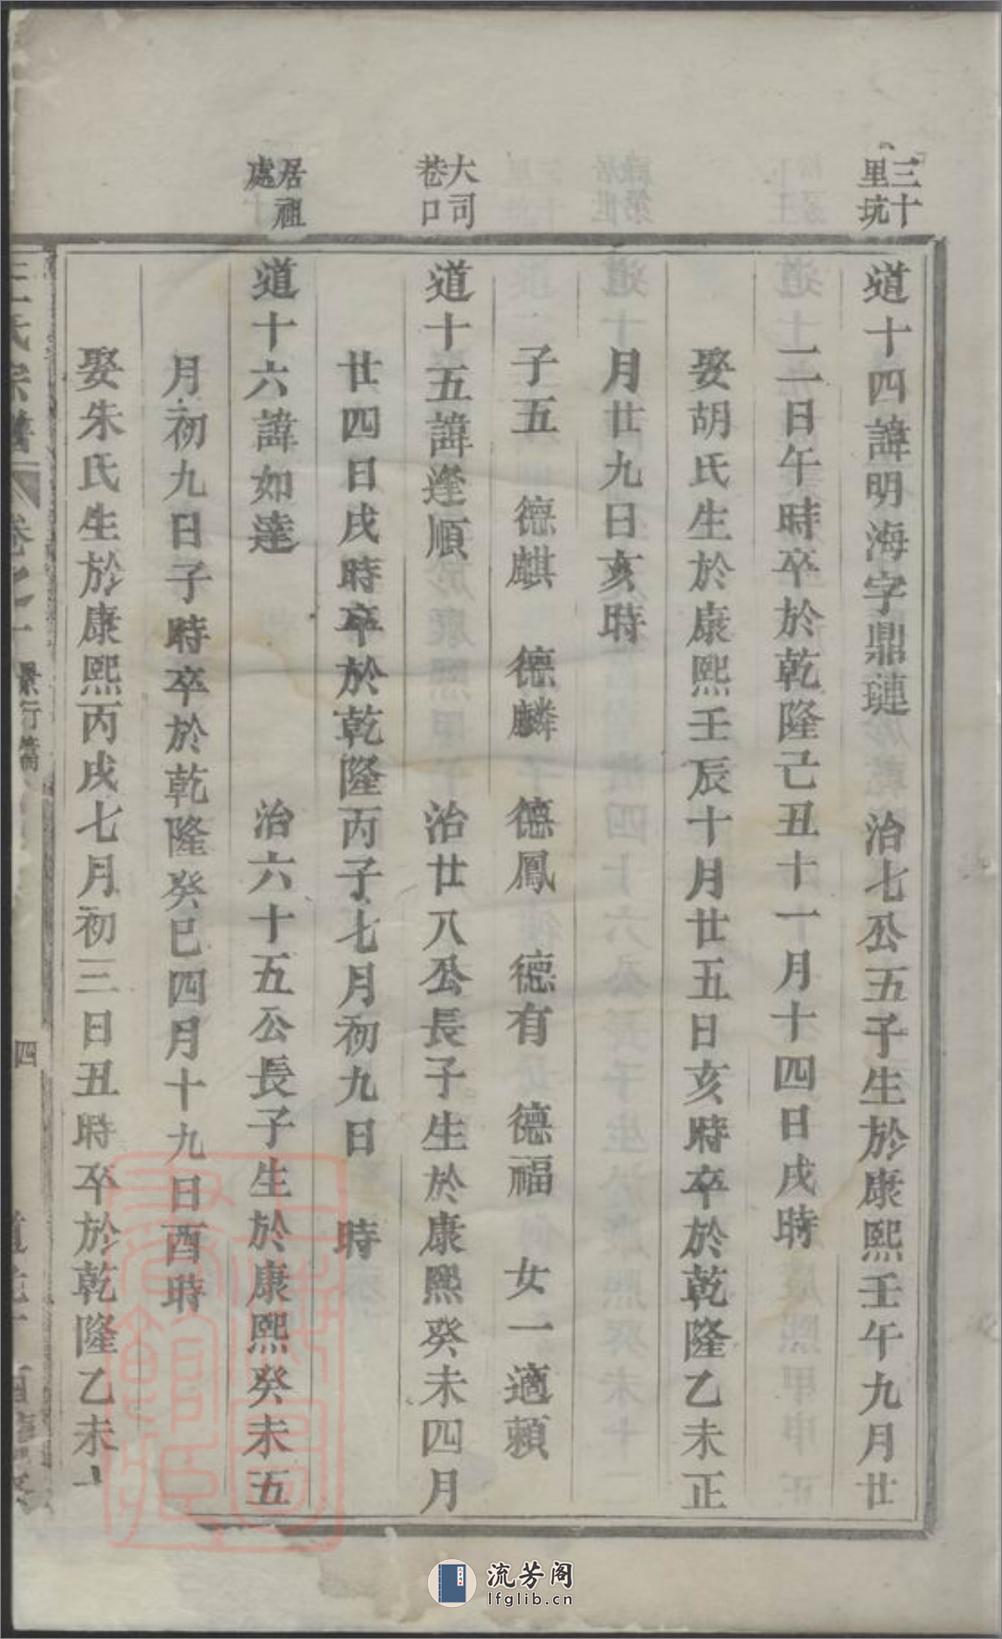 三十
里坑
道十四諱明海字鼎璉 治七公五子生於康熙壬午九月廿
二日午時卒於乾隆己丑十一月十四日戌時
娶胡氏生於康熙壬辰十月廿五日亥時卒於乾隆乙未正
月廿九日亥時
子五 德麒 德麟 德鳳 德有 德福 女一適賴
大司
巷口
道十五諱逢順 治廿八公長子生於康熙癸未四月
廿四日戌時卒於乾隆丙子七月初九日 時
居祖
處
道十六諱如達 治六十五公長子生於康熙癸未五
月初九日子時卒於乾隆癸巳四月十九日酉時
娶朱氏生於康熙丙戌七月初三日丑時卒於乾隆乙未十
王氏宗譜 卷之 景行 四
流芳阁
lfglib.cn